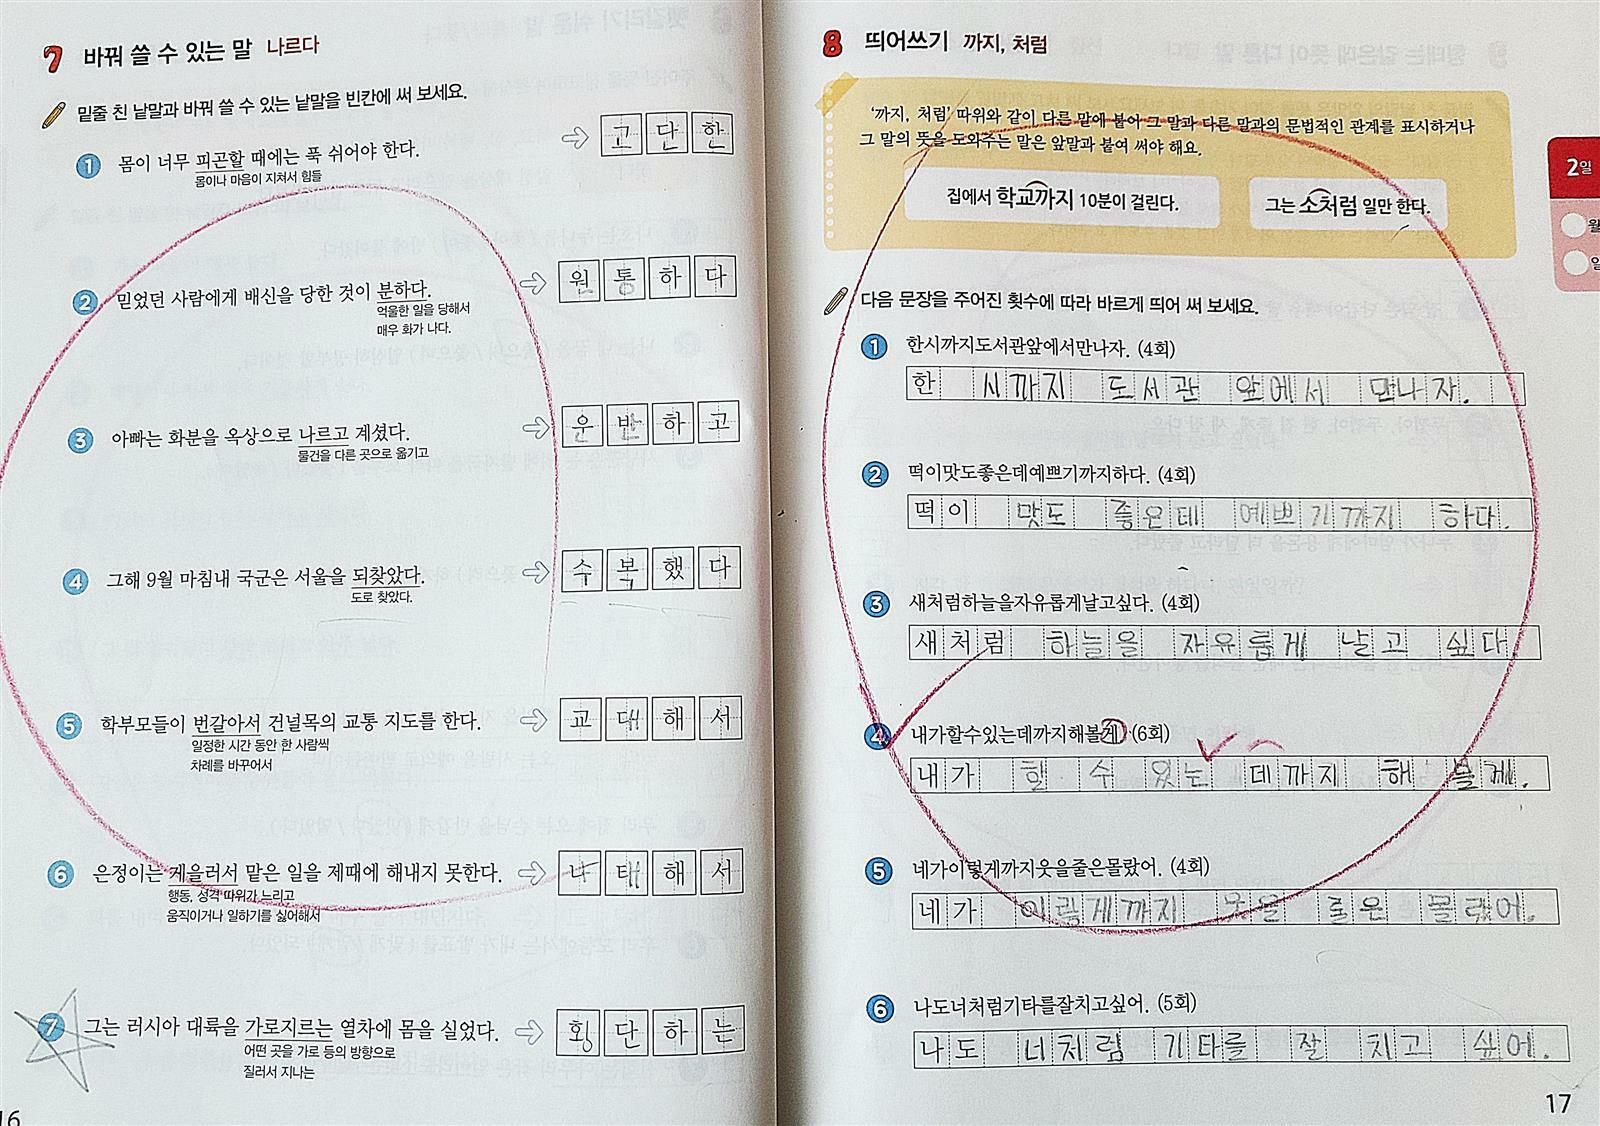 7 바꿔 쓸 수 있는 말 나르다
밑줄 친 낱말과 바꿔 쓸 수 있는 낱말을 빈칸에 써 보세요.
1 몸이 너무 피곤할 때에는 푹 쉬어야 한다. 고단한
몸이나 마음이 지쳐서 힘들
2 믿었던 사람에게 배신을 당한 것이 분하다. 원통하다
억울한 일을 당해서
매우 화가 나다.
3 아빠는 화분을 옥상으로 나르고 계셨다. 운반하고
물건을 다른 곳으로 옮기고
4 그해 9월 마침내 국군은 서울을 되찾았다. 수복했다
도로 찾았다.
5 학부모들이 번갈아서 건널목의 교통 지도를 한다. 교대해서
일정한 시간 동안 한 사람씩
차례를 바꾸어서
6 은정이는 게을러서 맡은 일을 제때에 해내지 못한다. 나태해서
행동, 성격 따위가 느리고
움직이거나 일하기를 싫어해서
7 그는 러시아 대륙을 가로지르는 열차에 몸을 실었다. 횡단하는
어떤 곳을 가로 등의 방향으로
질러서 지나는
16
8 띄어쓰기 까지, 처럼
‘까지, 처럼’ 따위와 같이 다른 말에 붙어 그 말과 다른 말과의 문법적인 관계를 표시하거나
그 말의 뜻을 도와주는 말은 앞말과 붙여 써야 해요.
집에서 학교까지 10분이 걸린다. 그는 소처럼 일만 한다.
2일
월
일
다음 문장을 주어진 횟수에 따라 바르게 띄어 써 보세요.
1 한시까지도서관앞에서만나자. (4회)
한 시까지 도서관 앞에서 만나자.
2 떡이맛도좋은데예쁘기까지하다. (4회)
떡이 맛도 좋은데 예쁘기까지 하다.
3 새처럼하늘을자유롭게날고싶다. (4회)
새처럼 하늘을 자유롭게 날고 싶다.
4 내가할수있는데까지해볼게 (6회)
내가 할 수 있는 데까지 해 볼게.
5 네가이렇게까지웃을줄은몰랐어. (4회)
네가 이렇게까지 웃을 줄은 몰랐어.
6 나도너처럼기타를잘치고싶어. (5회)
나도 너처럼 기타를 잘 치고 싶어.
17